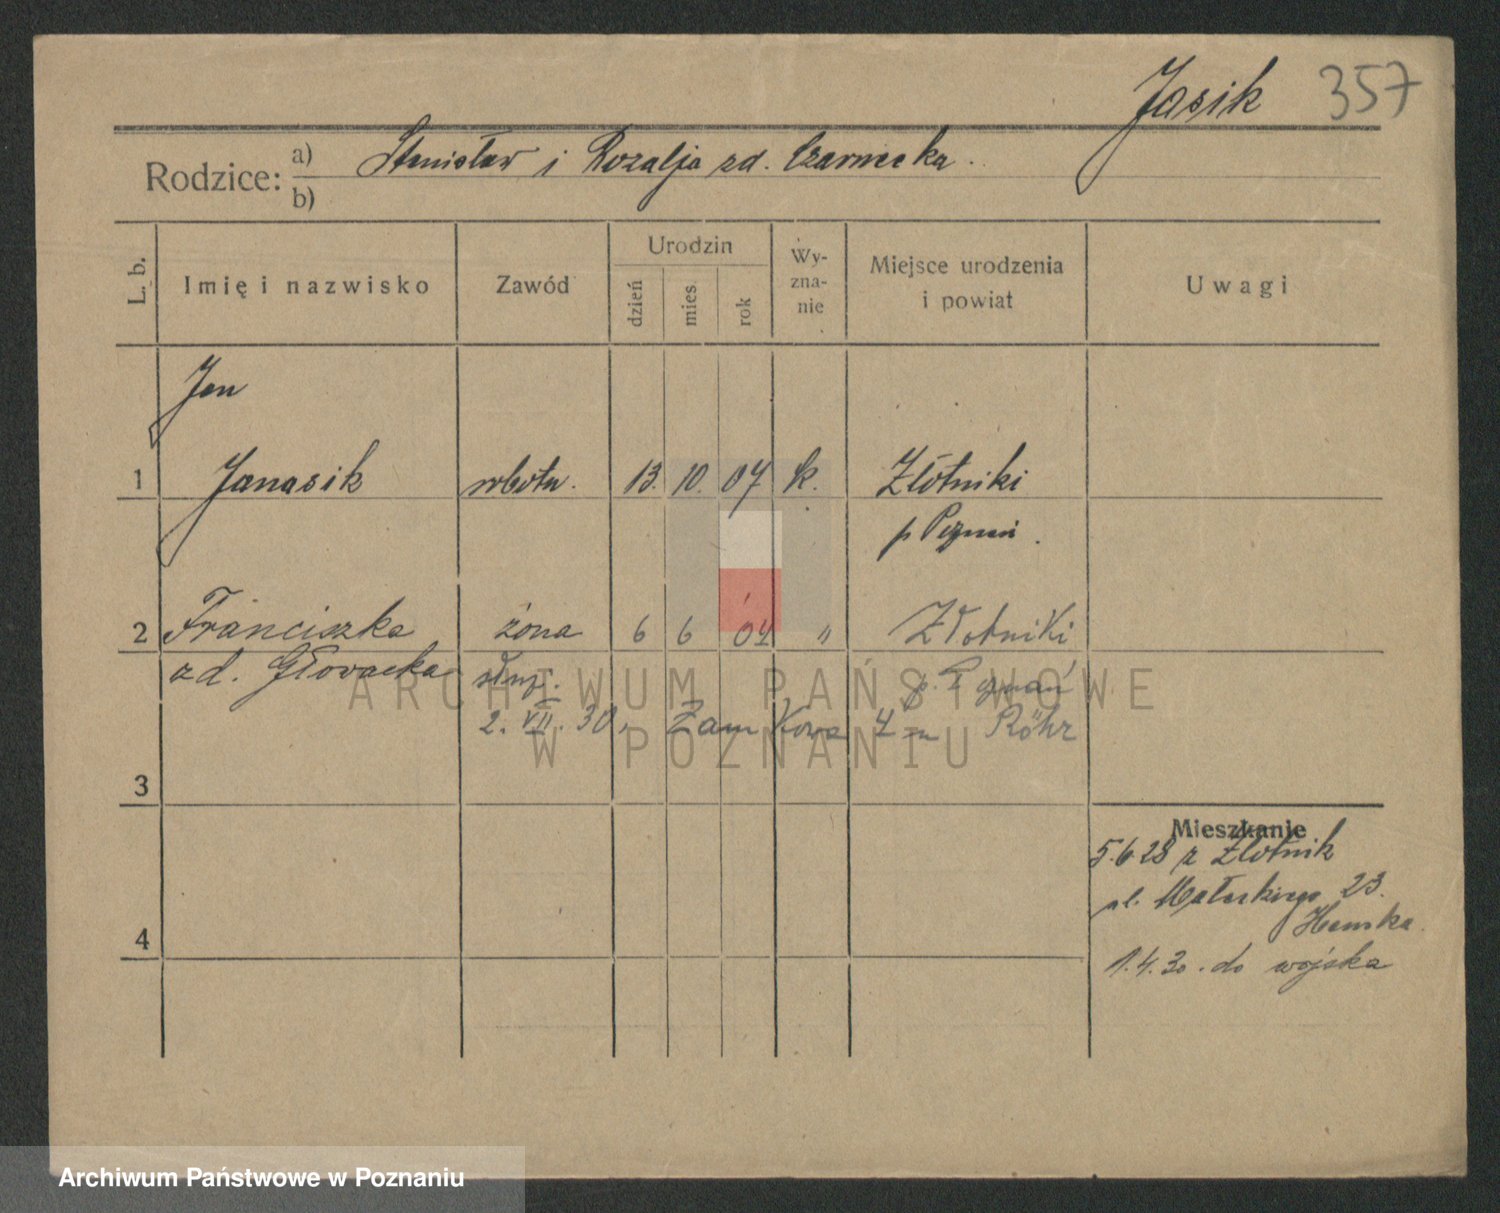 Jasik 357
Rodzice: a) Stanisław i Rozalja zd. Czarnecka.
b)
L. b. Imię i nazwisko Zawód Urodzin dzień mies. rok Wyznanie Miejsce urodzenia i powiat Uwagi
Jan
1 Janasik robotn. 13. 10. 07 k. Złotniki
p Poznań.
2 Franciszka żona 6 6 04 " Złotniki
zd. Głovacka służ. p. Poznań
2. VII. 30. Zamkova 4 m Röhr
3
Mieszkanie
5.6.28 z Złotnik
23.
4
1.4.30. do wojska
ARCHIWUM PAŃSTWOWE
W POZNANIU
Archiwum Państwowe w Poznaniu